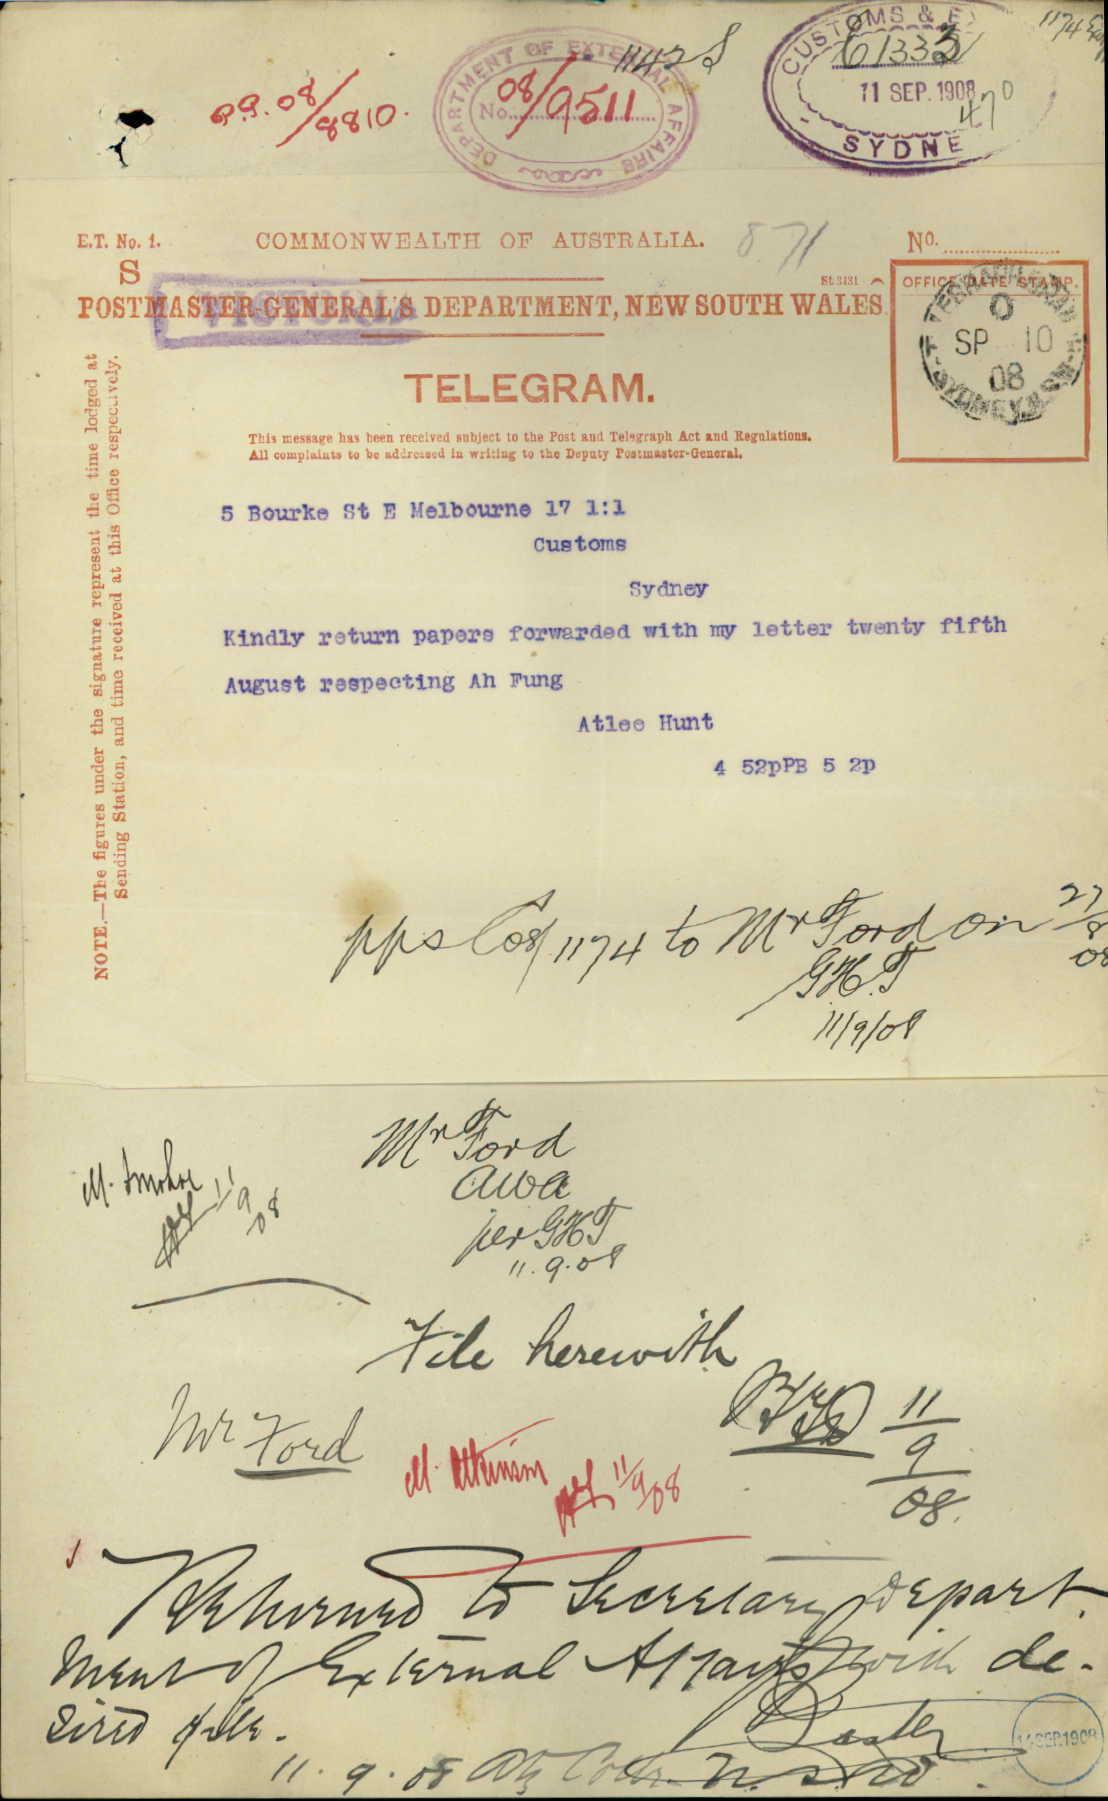 P.P. 08/8810.
DEPARTMENT OF EXTERNAL AFFAIRS
No. 08/9511
1142 S
CUSTOMS & E
61333
11 SEP. 1908
470
SYDNE
1174
E.T. No. 1.
COMMONWEALTH OF AUSTRALIA.
871
No.
S
St.3131
POSTMASTER-GENERAL'S DEPARTMENT, NEW SOUTH WALES.
VICTORIA
OFFICE DATE STAMP.
SP 10
08
TELEGRAM.
This message has been received subject to the Post and Telegraph Act and Regulations.
All complaints to be addressed in writing to the Deputy Postmaster-General.
NOTE.—The figures under the signature represent the time lodged at
Sending Station, and time received at this Office respectively.
5 Bourke St E Melbourne 17 1:1
Customs
Sydney
Kindly return papers forwarded with my letter twenty fifth
August respecting Ah Fung
Atlee Hunt
4 52pPB 5 2p
pps C08/1174 to Mr Ford on 27/8/08
G.H.T
11/9/08
Mr Ford
awa
per GHT
11.9.08
11/9/08
File herewith
11/9/08.
Mr Ford
M. Atkinson
11/9/08
Returned to Secretary Depart.
ment of External Affairs with de-
sired file.
Baxter
11.9.08 N.S.W.
14 SEP. 1908